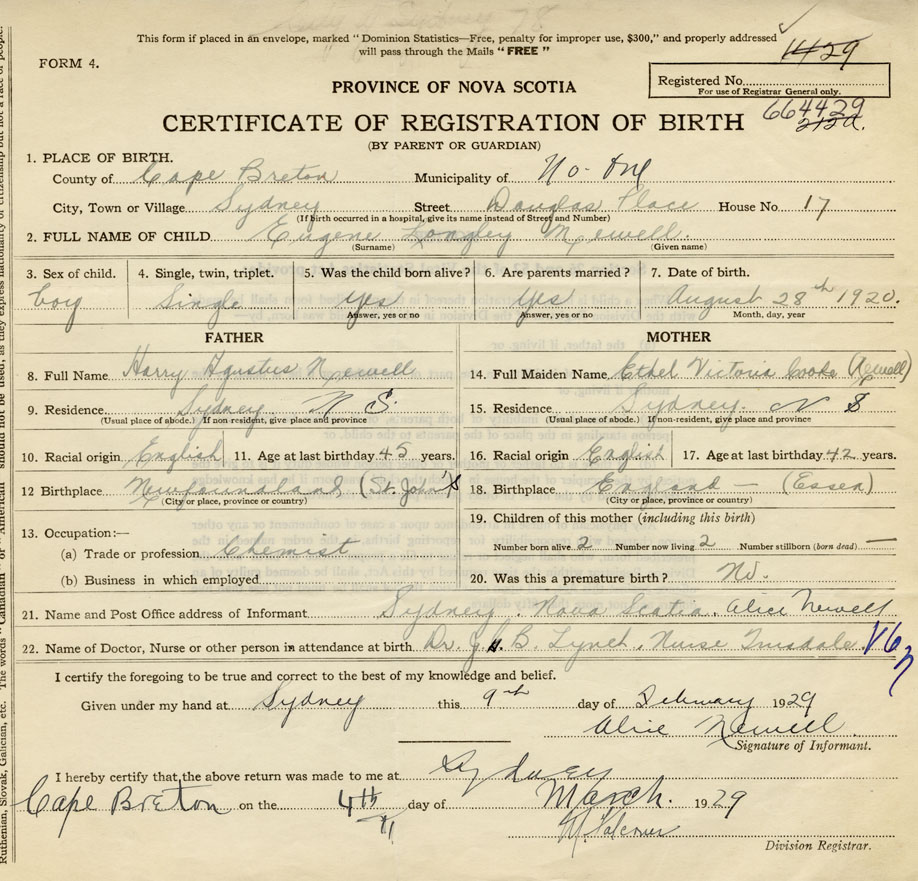 This form if placed in an envelope, marked "Dominion Statistics—Free, penalty for improper use, $300," and properly addressed
will pass through the Mails "FREE"
1429
FORM 4.
PROVINCE OF NOVA SCOTIA
Registered No.
For use of Registrar General only.
664429
CERTIFICATE OF REGISTRATION OF BIRTH
(BY PARENT OR GUARDIAN)
1. PLACE OF BIRTH.
County of Cape Breton Municipality of No. One
City, Town or Village Sydney Street Douglas Place House No. 17
(If birth occurred in a hospital, give its name instead of Street and Number)
2. FULL NAME OF CHILD Eugene Longley Newell.
(Surname) (Given name)
3. Sex of child. 4. Single, twin, triplet. 5. Was the child born alive? 6. Are parents married? 7. Date of birth.
boy Single yes yes August 28th 1920.
Answer, yes or no Answer, yes or no Month, day, year
FATHER MOTHER
8. Full Name Harry Agustus Newell 14. Full Maiden Name Ethel Victoria Cooke (Newell)
9. Residence Sydney N S. 15. Residence Sydney. N S
(Usual place of abode.) If non-resident, give place and province (Usual place of abode.) If non-resident, give place and province
10. Racial origin English 11. Age at last birthday 45 years. 16. Racial origin English 17. Age at last birthday 42 years.
12 Birthplace Newfoundland (St. John's 18. Birthplace England — (Essex)
(City or place, province or country) (City or place, province or country)
19. Children of this mother (including this birth)
13. Occupation:—
(a) Trade or profession Chemist
Number born alive 2 Number now living 2 Number stillborn (born dead) —
(b) Business in which employed
20. Was this a premature birth? No.
21. Name and Post Office address of Informant Sydney. Nova Scotia. Alice Newell
22. Name of Doctor, Nurse or other person in attendance at birth Dr. J. B. Lynch. Nurse Truesdale.
I certify the foregoing to be true and correct to the best of my knowledge and belief.
Given under my hand at Sydney this 9th day of February 1929
Alice Newell
Signature of Informant.
I hereby certify that the above return was made to me at Sydney
Cape Breton on the 4th day of March. 1929
Division Registrar.